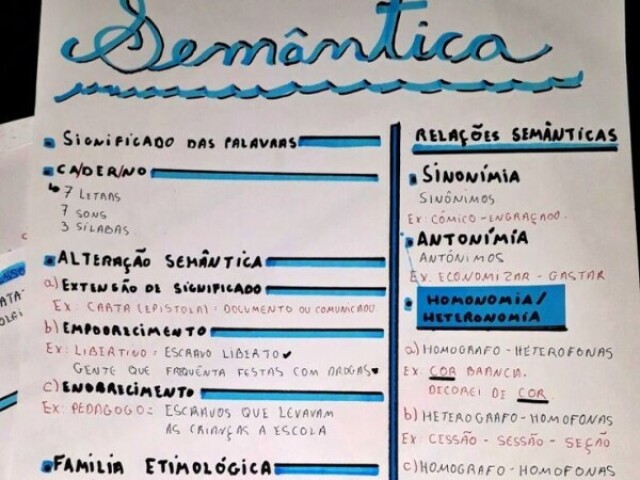 Semântica
SIGNIFICADO DAS PALAVRAS
CA/DER/NO
7 LETRAS
7 SONS
3 SÍLABAS
ALTERAÇÃO SEMÂNTICA
a) EXTENSÃO DE SIGNIFICADO
EX: CARTA (EPISTOLA): DOCUMENTO OU COMUNICADO
b) EMPOBRECIMENTO
EX: LIBERTINO: ESCRAVO LIBERTO
GENTE QUE FREQUENTA FESTAS COM DROGAS
c) ENOBRECIMENTO
EX: PEDAGOGO: ESCRAVOS QUE LEVAVAM
AS CRIANÇAS A ESCOLA
FAMILIA ETIMOLÓGICA
RELAÇÕES SEMÂNTICAS
SINONÍMIA
SINÔNIMOS
EX: CÔMICO - ENGRAÇADO.
ANTONÍMIA
ANTÔNIMOS
EX: ECONOMIZAR - GASTAR
HOMONOMIA/
HETERONOMIA
a) HOMOGRAFO - HETEROFONAS
EX: COR BRANCA.
DECOREI DE COR
b) HETEROGRAFO - HOMOFONAS
EX: CESSÃO - SESSÃO - SEÇÃO
c) HOMOGRAFO - HOMOFONAS